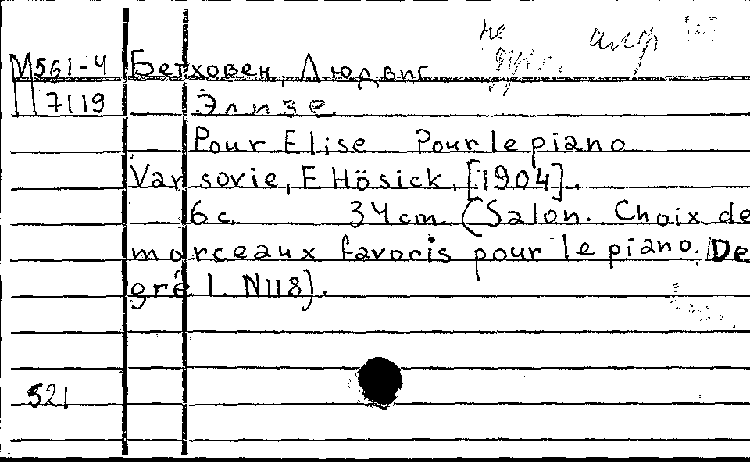 не алф
М561-4 Бетховен, Людвиг
7119 Элизе
Pour Elise Pour le piano
Varsovie, F Hösick, [1904].
6 с. 34 cm. (Salon. Choix de
morceaux favoris pour le piano. De
gré I. N118).
521